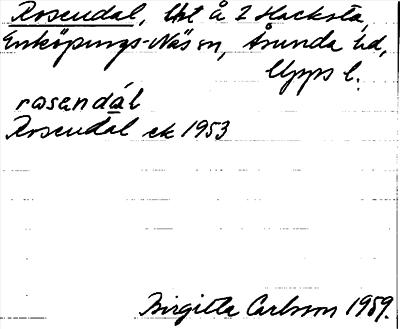 Rosendal, lht å 2 Hacksta,
Enköpings-Näs sn, Åsunda hd,
Upps l.
rosendál
Rosendal ek 1953
Birgitta Carlsson 1959.